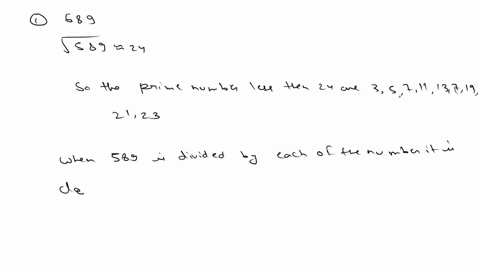 ① 589
√589 ≈ 24
So the prime number less then 24 are 3, 5, 7, 11, 13, 17, 19,
21, 23
when 589 is divided by each of the number it is
de